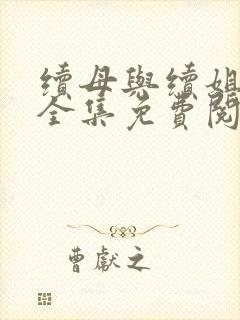 續母與續姐
全集免費閱
曹獻之